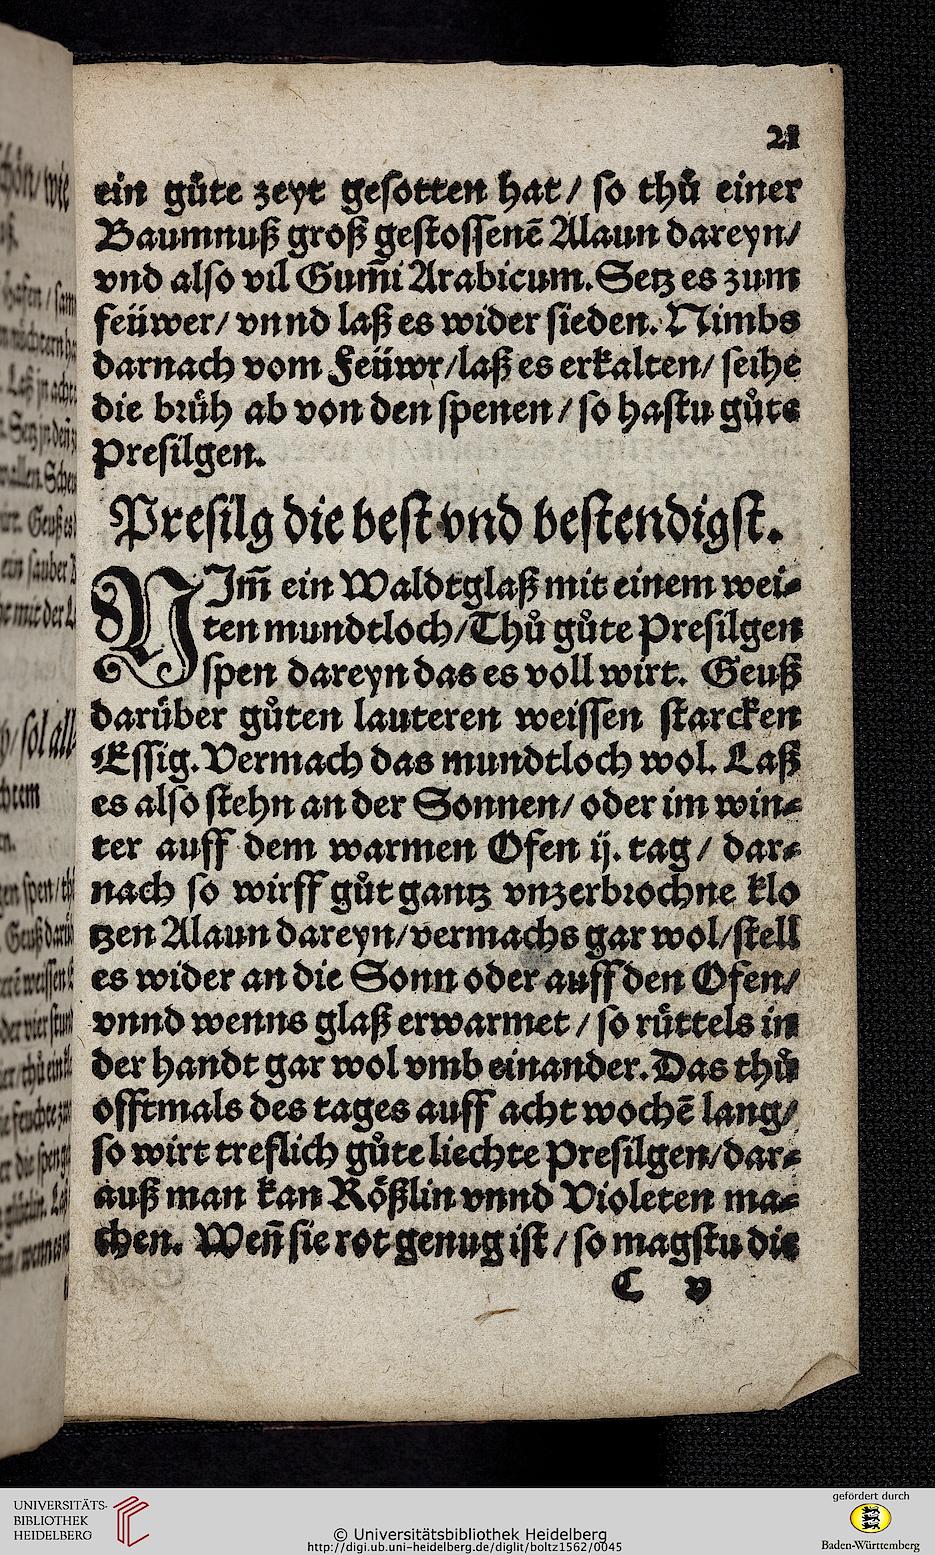 21
ein gůte zeyt gesotten hat / so thů einer
Baumnuß groß gestossenẽ Alaun dareyn/
vnd also vil Gum̃i Arabicum. Setz es zum
feüwer/ vnnd laß es wider sieden. Nimbs
darnach vom Feüwr/laß es erkalten/ seihe
die brüh ab von den spenen / so hastu gůte
Presilgen.
Presilg die best vnd bestendigst.
NIm̃ ein Waldtglaß mit einem wei⸗
ten mundtloch/Thů gůte Presilgen
spen dareyn das es voll wirt. Geuß
darüber gůten lauteren weissen starcken
Essig. Vermach das mundtloch wol. Laß
es also stehn an der Sonnen/ oder im win⸗
ter auff dem warmen Ofen ij. tag / dar⸗
nach so wirff gůt gantz vnzerbrochne klo
tzen Alaun dareyn/vermachs gar wol/stell
es wider an die Sonn oder auff den Ofen/
vnnd wenns glaß erwarmet / so rüttels in
der handt gar wol vmb einander. Das thů
offtmals des tages auff acht wochẽ lang/
so wirt treflich gůte liechte Presilgen/dar⸗
auß man kan Rößlin vnnd Violeten ma⸗
chen. Weñ sie rot genug ist / so magstu die
C v
UNIVERSITÄTS-
BIBLIOTHEK
HEIDELBERG
© Universitätsbibliothek Heidelberg
http://digi.ub.uni-heidelberg.de/diglit/boltz1562/0045
gefördert durch
Baden-Württemberg